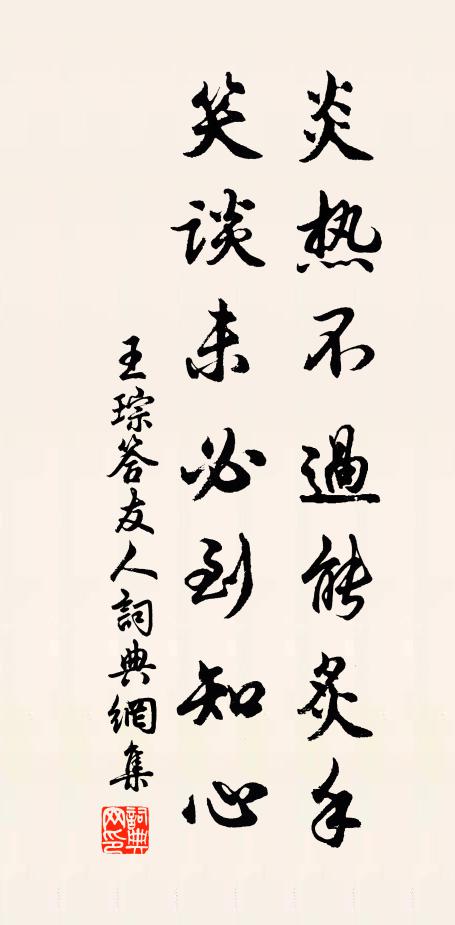 炎热不過能炙手
笑談未必到知心
王琮答友人詞典網集
詞典网印